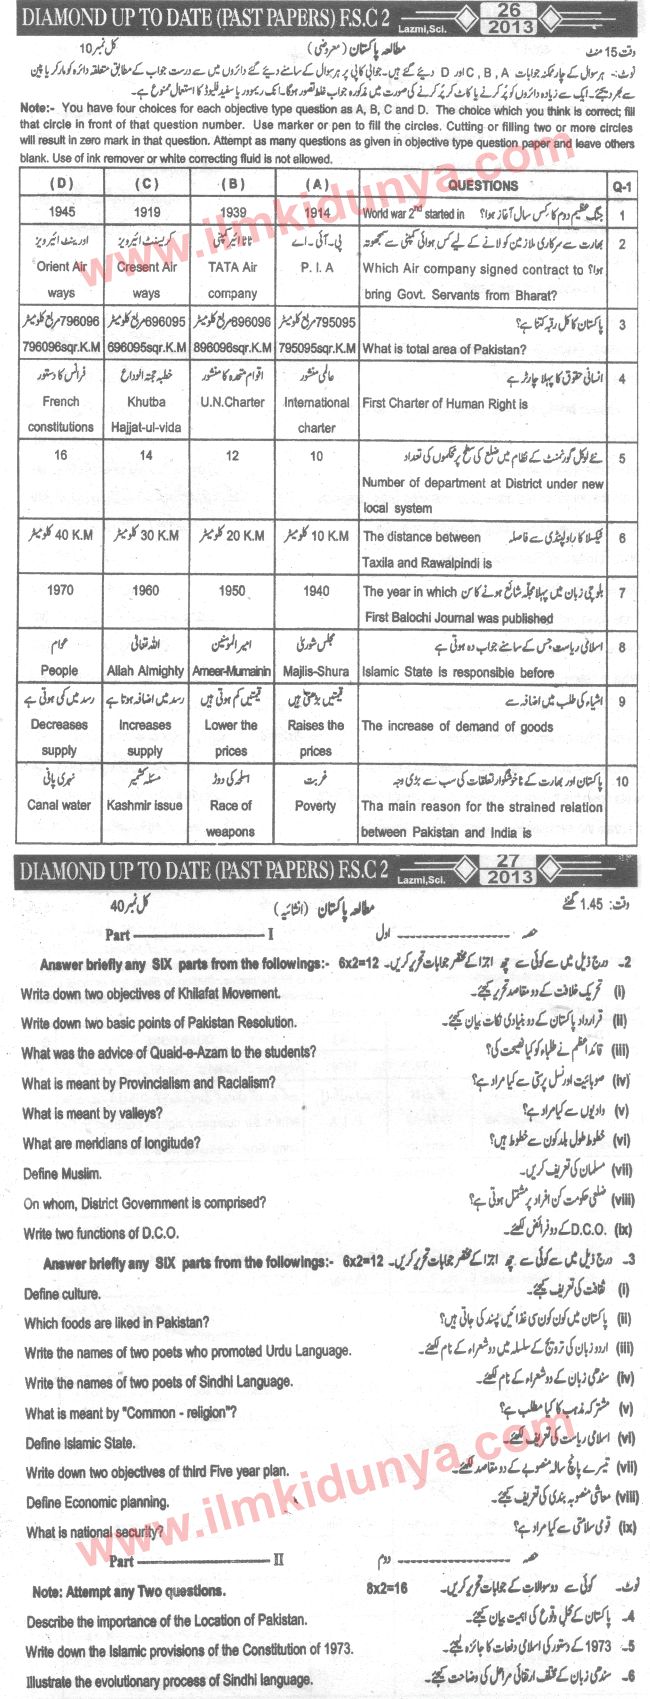 DIAMOND UP TO DATE (PAST PAPERS) F.S.C 2 Lazmi,Sci. 26 2013
وقت 15 منٹ مطالعہ پاکستان (معروضی) کل نمبر 10
نوٹ:- ہر سوال کے چار ممکنہ جوابات A, B, C اور D دیئے گئے ہیں۔ جوابی کاپی پر ہر سوال کے سامنے دیئے گئے دائروں میں سے درست جواب کے مطابق متعلقہ دائرہ کو مارکر یا پین
سے بھر دیجئے۔ ایک سے زیادہ دائروں کو پُر کرنے یا کاٹ کر پُر کرنے کی صورت میں مذکورہ جواب غلط تصور ہوگا۔ انک ریموور یا سفید فلیوڈ کا استعمال ممنوع ہے۔
Note:- You have four choices for each objective type question as A, B, C and D. The choice which you think is correct; fill
that circle in front of that question number. Use marker or pen to fill the circles. Cutting or filling two or more circles
will result in zero mark in that question. Attempt as many questions as given in objective type question paper and leave others
blank. Use of ink remover or white correcting fluid is not allowed.
(D) (C) (B) (A) QUESTIONS Q-1
1945 1919 1939 1914 World war 2nd started in جنگ عظیم دوم کا کس سال آغاز ہوا؟ 1
اورینٹ ائیرویز کریسنٹ ائیرویز ٹاٹا ائیر کمپنی پی۔آئی۔اے بھارت سے سرکاری ملازمین کو لانے کے لیے کس ہوائی کمپنی سے سمجھوتہ 2
Orient Air Cresent Air TATA Air P. I. A Which Air company signed contract to ہوا؟
ways ways company bring Govt. Servants from Bharat?
796096مربع کلومیٹر 696095مربع کلومیٹر 896096مربع کلومیٹر 795095مربع کلومیٹر پاکستان کا کل رقبہ کتنا ہے؟ 3
796096sqr.K.M 696095sqr.K.M 896096sqr.K.M 795095sqr.K.M What is total area of Pakistan?
فرانس کا دستور خطبہ حجۃ الوداع اقوام متحدہ کا منشور عالمی منشور انسانی حقوق کا پہلا چارٹر ہے 4
French Khutba U.N.Charter International First Charter of Human Right is
constitutions Hajjat-ul-vida charter
16 14 12 10 نئے لوکل گورنمنٹ کے نظام میں ضلع کی سطح پر محکموں کی تعداد 5
Number of department at District under new
local system
40 K.M کلومیٹر 30 K.M کلومیٹر 20 K.M کلومیٹر 10 K.M کلومیٹر The distance between ٹیکسلا کا راولپنڈی سے فاصلہ 6
Taxila and Rawalpindi is
1970 1960 1950 1940 The year in which بلوچی زبان میں پہلا مجلّہ شائع ہونے کا سن 7
First Balochi Journal was published
عوام اللہ تعالی امیر المومنین مجلس شوریٰ اسلامی ریاست جس کے سامنے جواب دہ ہوتی ہے 8
People Allah Almighty Ameer-Mumainin Majlis-Shura Islamic State is responsible before
رسد میں کمی ہوتی ہے رسد میں اضافہ ہوتا ہے قیمتیں کم ہوتی ہیں قیمتیں بڑھتی ہیں اشیاء کی طلب میں اضافہ سے 9
Decreases Increases Lower the Raises the The increase of demand of goods
supply supply prices prices
نہری پانی مسئلہ کشمیر اسلحہ کی دوڑ غربت پاکستان اور بھارت کے ناخوشگوار تعلقات کی سب سے بڑی وجہ 10
Canal water Kashmir issue Race of Poverty Tha main reason for the strained relation
weapons between Pakistan and India is
www.ilmkidunya.com
DIAMOND UP TO DATE (PAST PAPERS) F.S.C 2 Lazmi,Sci. 27 2013
وقت: 1.45 گھنٹے مطالعہ پاکستان (انشائیہ) کل نمبر 40
Part I حصہ اول
Answer briefly any SIX parts from the followings:- 6x2=12 2۔ درج ذیل میں سے کوئی سے چھ اجزا کے مختصر جوابات تحریر کریں۔
Writa down two objectives of Khilafat Movement. (i) تحریک خلافت کے دو مقاصد تحریر کیجئے۔
Write down two basic points of Pakistan Resolution. (ii) قرارداد پاکستان کے دو بنیادی نکات بیان کیجئے۔
What was the advice of Quaid-e-Azam to the students? (iii) قائداعظم نے طلباء کو کیا نصیحت کی؟
What is meant by Provincialism and Racialism? (iv) صوبائیت اور نسل پرستی سے کیا مراد ہے؟
What is meant by valleys? (v) وادیوں سے کیا مراد ہے؟
What are meridians of longitude? (vi) خطوط طول بلد کون سے خطوط ہیں؟
Define Muslim. (vii) مسلمان کی تعریف کریں۔
On whom, District Government is comprised? (viii) ضلعی حکومت کن افراد پر مشتمل ہوتی ہے؟
Write two functions of D.C.O. (ix) D.C.O. کے دو فرائض لکھئے۔
Answer briefly any SIX parts from the followings:- 6x2=12 3۔ درج ذیل میں سے کوئی سے چھ اجزا کے مختصر جوابات تحریر کریں۔
Define culture. (i) ثقافت کی تعریف کیجئے۔
Which foods are liked in Pakistan? (ii) پاکستان میں کون کون سی غذائیں پسند کی جاتی ہیں؟
Write the names of two poets who promoted Urdu Language. (iii) اردو زبان کی ترویج کے سلسلہ میں دو شعراء کے نام لکھئے۔
Write the names of two poets of Sindhi Language. (iv) سندھی زبان کے دو شعراء کے نام لکھئے۔
What is meant by "Common - religion"? (v) مشترکہ مذہب کا کیا مطلب ہے؟
Define Islamic State. (vi) اسلامی ریاست کی تعریف لکھئے۔
Write down two objectives of third Five year plan. (vii) تیسرے پانچ سالہ منصوبے کے دو مقاصد لکھئے۔
Define Economic planning. (viii) معاشی منصوبہ بندی کی تعریف کیجئے۔
What is national security? (ix) قومی سلامتی سے کیا مراد ہے؟
www.ilmkidunya.com
Part II حصہ دوم
Note: Attempt any Two questions. 8x2=16 نوٹ۔ کوئی سے دو سوالات کے جوابات تحریر کریں۔
Describe the importance of the Location of Pakistan. 4۔ پاکستان کے محل وقوع کی اہمیت بیان کیجئے۔
Write down the Islamic provisions of the Constitution of 1973. 5۔ 1973 کے دستور کی اسلامی دفعات کا جائزہ لیجئے۔
Illustrate the evolutionary process of Sindhi language. 6۔ سندھی زبان کے مختلف ارتقائی مراحل کی وضاحت کیجئے۔